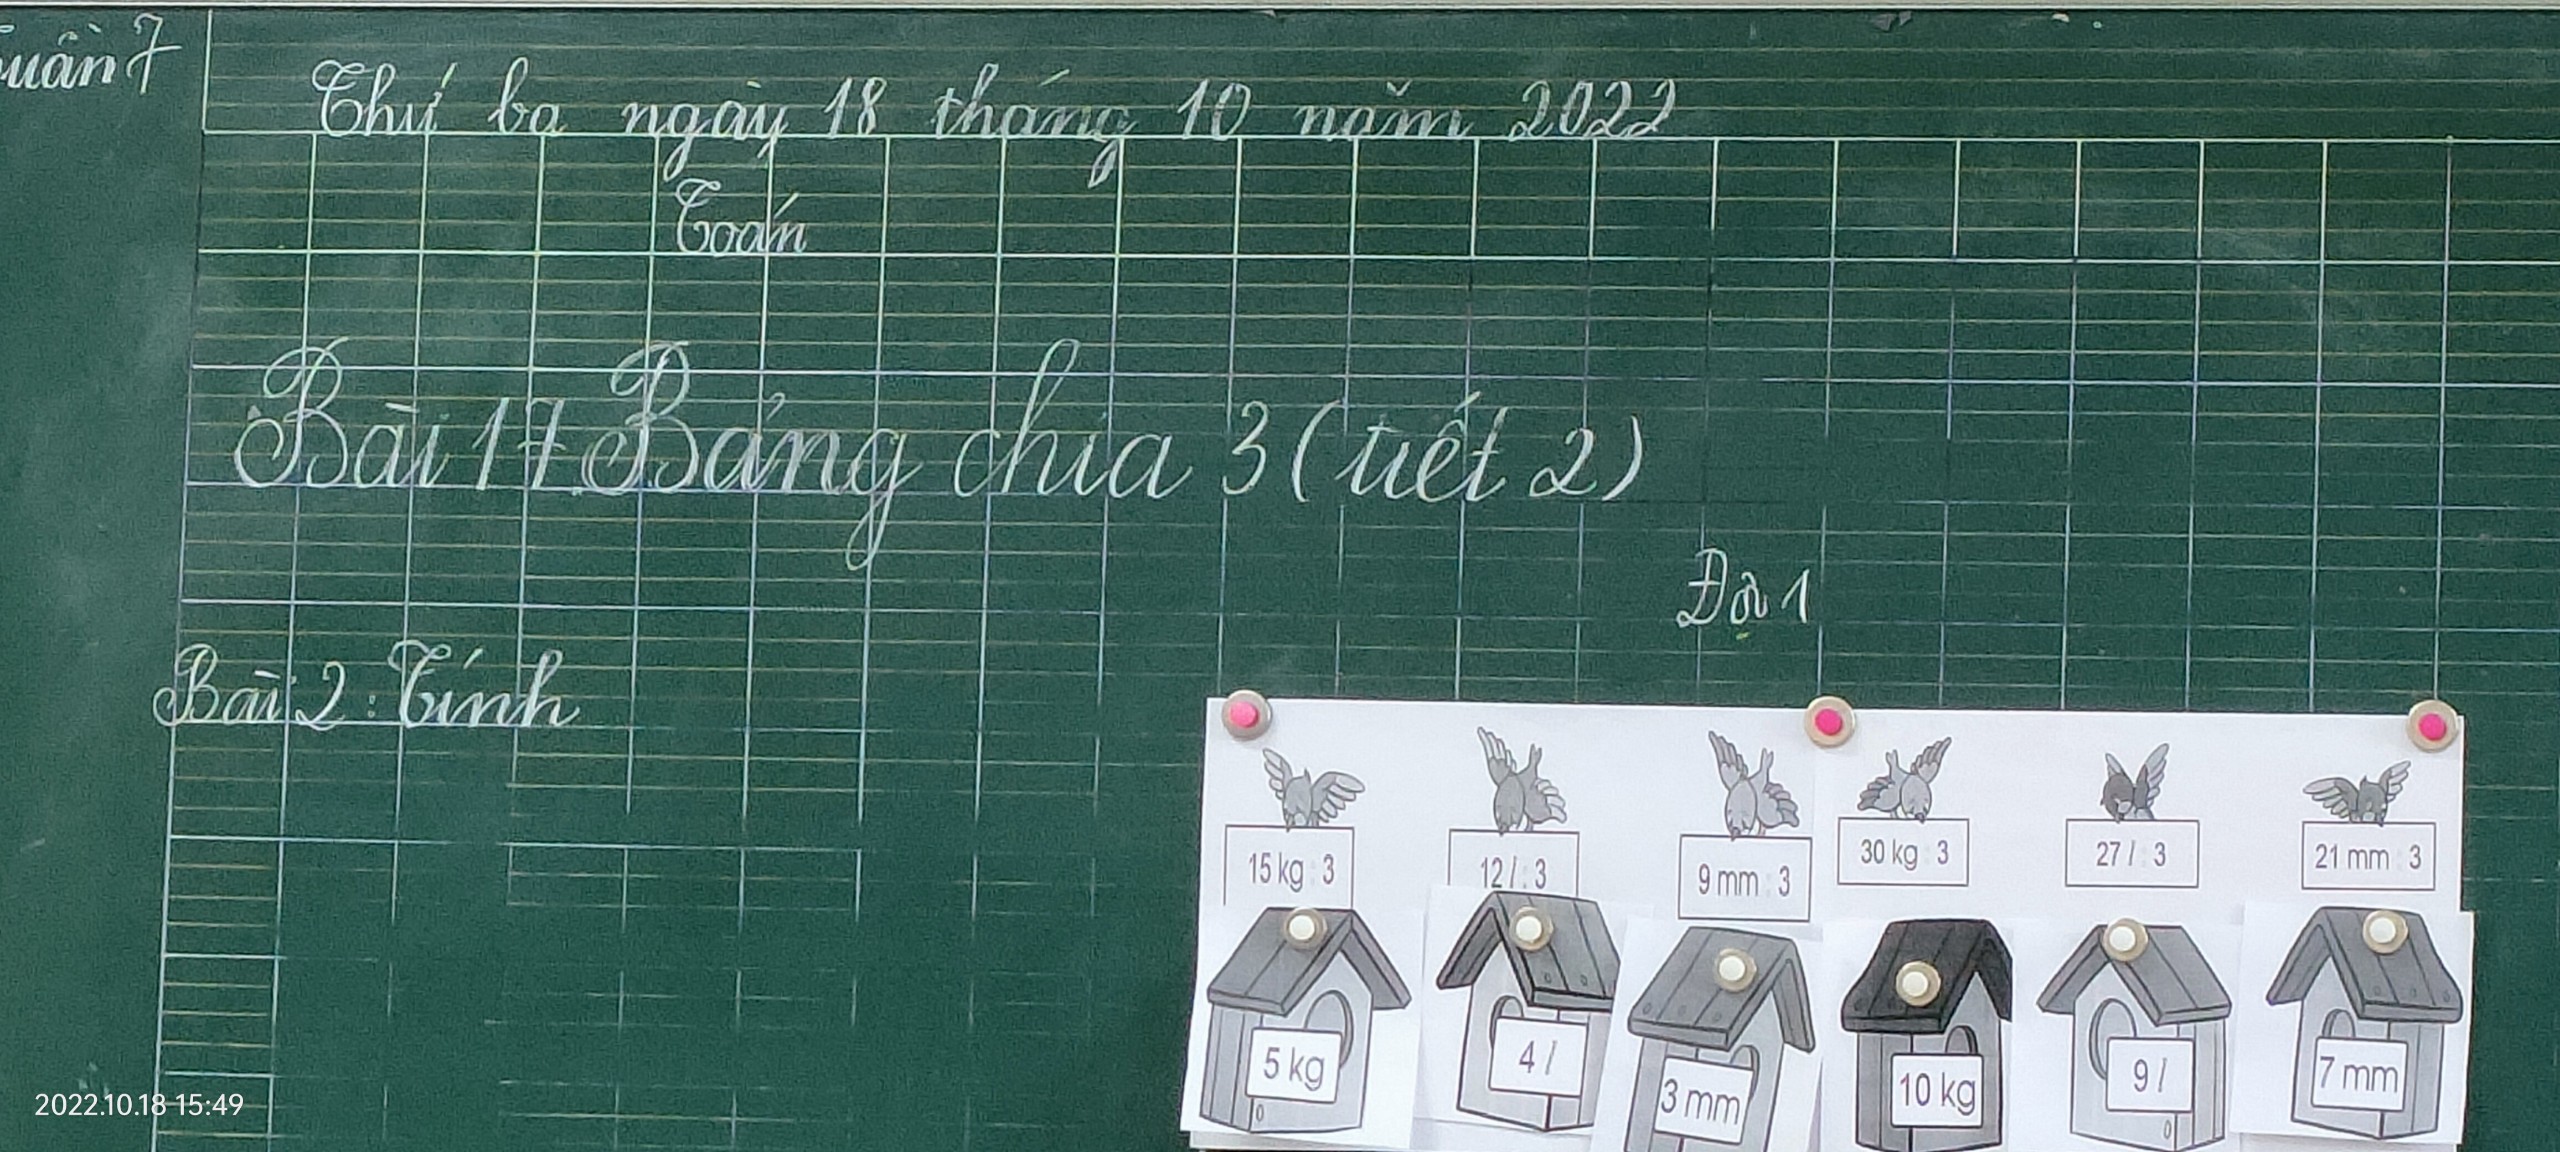 Tuần 7
Thứ ba ngày 18 tháng 10 năm 2022
Toán
Bài 17 Bảng chia 3 (tiết 2)
Đội 1
Bài 2: Tính
15 kg : 3
12 l : 3
9 mm : 3
30 kg : 3
27 l : 3
21 mm : 3
5 kg
4 l
3 mm
10 kg
9 l
7 mm
2022.10.18 15:49